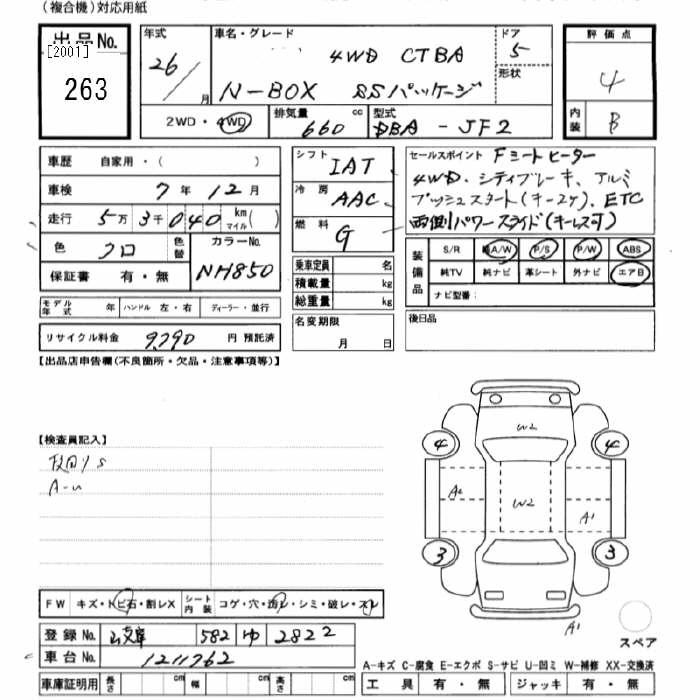 (複合機)対応用紙
出品No.
[2001]
263
年式
26 / 月
車名・グレード
4WD CTBA
N-BOX SSパッケージ
ドア
5
形状
評価点
4
内装
B
2WD・4WD
排気量
660 cc
型式
DBA - JF2
車歴 自家用・( )
車検 7年 12月
走行 5万 3千 040 km マイル( )
色 クロ 色替
カラーNo.
NH850
保証書 有・無
モデル年式 年 ハンドル 左・右 ディーラー・並行
リサイクル料金 9,790 円 預託済
シフト IAT
冷房 AAC
燃料 G
乗車定員 名
積載量 kg
総重量 kg
名変期限
月 日
セールスポイント Fシートヒーター
4WD、シティブレーキ、アルミ
プッシュスタート(キー2ケ)、ETC
両側パワースライド(キーレス可)
装備品
S/R 純A/W P/S P/W ABS
純TV 純ナビ 革シート 外ナビ エアB
ナビ型番:
後日品
【出品店申告欄(不良箇所・欠品・注意事項等)】
【検査員記入】
A-u
W2
4 4
A2 W2 A1
3 3
A1
スペア
FW キズ・トビ石・割レX シート内装 コゲ・穴・汚レ・シミ・破レ・スレ
登録No. 582 ゆ 2822
車台No. 1211762
車庫証明用 長さ cm 幅 cm 高さ cm
A-キズ C-腐食 E-エクボ S-サビ U-凹ミ W-補修 XX-交換済
工具 有・無 ジャッキ 有・無